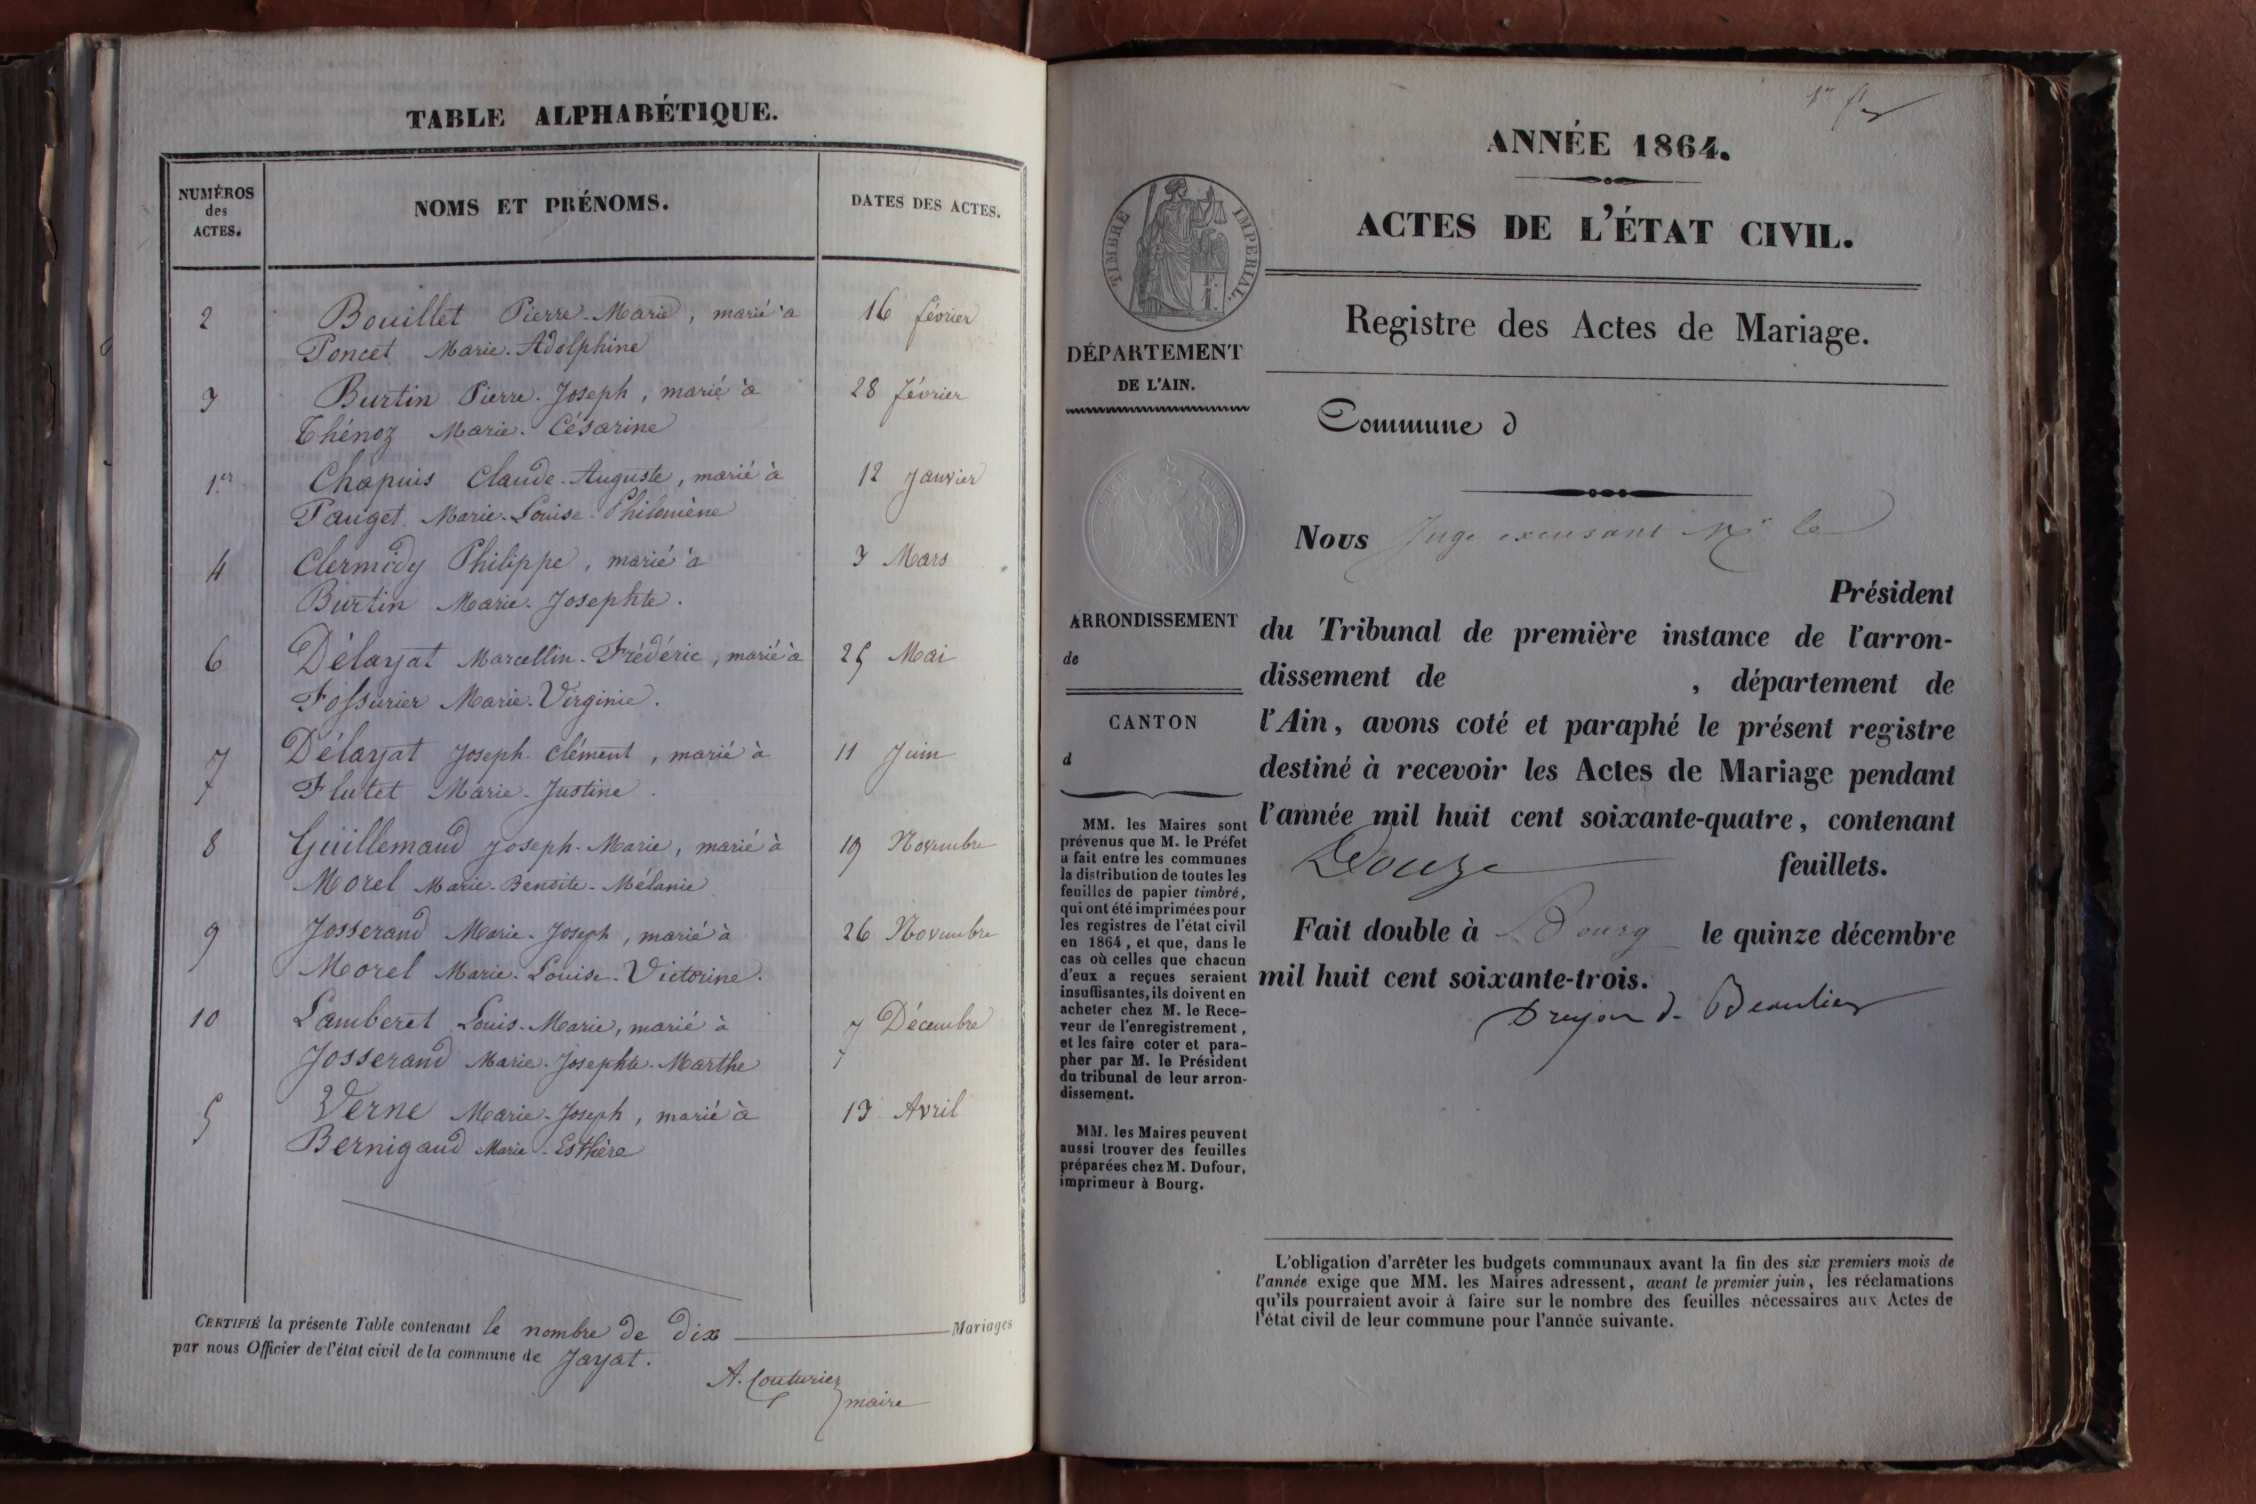 TABLE ALPHABÉTIQUE.
NUMÉROS
des
ACTES.
NOMS ET PRÉNOMS.
DATES DES ACTES.
2 Bouillet Pierre-Marie, marié à 16 février
Poncet Marie-Adolphine
3 Burtin Pierre-Joseph, marié à 28 février
Thénoz Marie-Césarine
1.er Chapuis Claude-Auguste, marié à 12 Janvier
Pauget Marie-Louise-Philomène
4 Clermidy Philippe, marié à 3 Mars
Burtin Marie-Josephte.
6 Délayat Marcellin-Frédéric, marié à 25 Mai
Fossurier Marie-Virginie.
7 Délayat Joseph-Clément, marié à 11 Juin
Flutet Marie-Justine.
8 Guillemaud Joseph-Marie, marié à 19 Novembre
Morel Marie-Benoite-Mélanie
9 Josserand Marie-Joseph, marié à 26 Novembre
Morel Marie-Louise-Victorine.
10 Lamberet Louis-Marie, marié à 7 Décembre
Josserand Marie-Josephte-Marthe
5 Verne Marie-Joseph, marié à 13 Avril
Bernigaud Marie-Esthère
CERTIFIÉ la présente Table contenant le nombre de dix Mariages
par nous Officier de l'état civil de la commune de Jayat.
A. Couturier
maire
ANNÉE 1864.
ACTES DE L'ÉTAT CIVIL.
TIMBRE IMPÉRIAL.
Registre des Actes de Mariage.
DÉPARTEMENT
DE L'AIN.
Commune d
Nous Juge excusant Mr le
Président
ARRONDISSEMENT
de
CANTON
d
du Tribunal de première instance de l'arron-
dissement de , département de
l'Ain, avons coté et paraphé le présent registre
destiné à recevoir les Actes de Mariage pendant
l'année mil huit cent soixante-quatre, contenant
Douze feuillets.
Fait double à Bourg le quinze décembre
mil huit cent soixante-trois.
Dreyon d. Beaulieu
MM. les Maires sont
prévenus que M. le Préfet
a fait entre les communes
la distribution de toutes les
feuilles de papier timbré,
qui ont été imprimées pour
les registres de l'état civil
en 1864, et que, dans le
cas où celles que chacun
d'eux a reçues seraient
insuffisantes, ils doivent en
acheter chez M. le Rece-
veur de l'enregistrement,
et les faire coter et para-
pher par M. le Président
du tribunal de leur arron-
dissement.
MM. les Maires peuvent
aussi trouver des feuilles
préparées chez M. Dufour,
imprimeur à Bourg.
L'obligation d'arrêter les budgets communaux avant la fin des six premiers mois de
l'année exige que MM. les Maires adressent, avant le premier juin, les réclamations
qu'ils pourraient avoir à faire sur le nombre des feuilles nécessaires aux Actes de
l'état civil de leur commune pour l'année suivante.